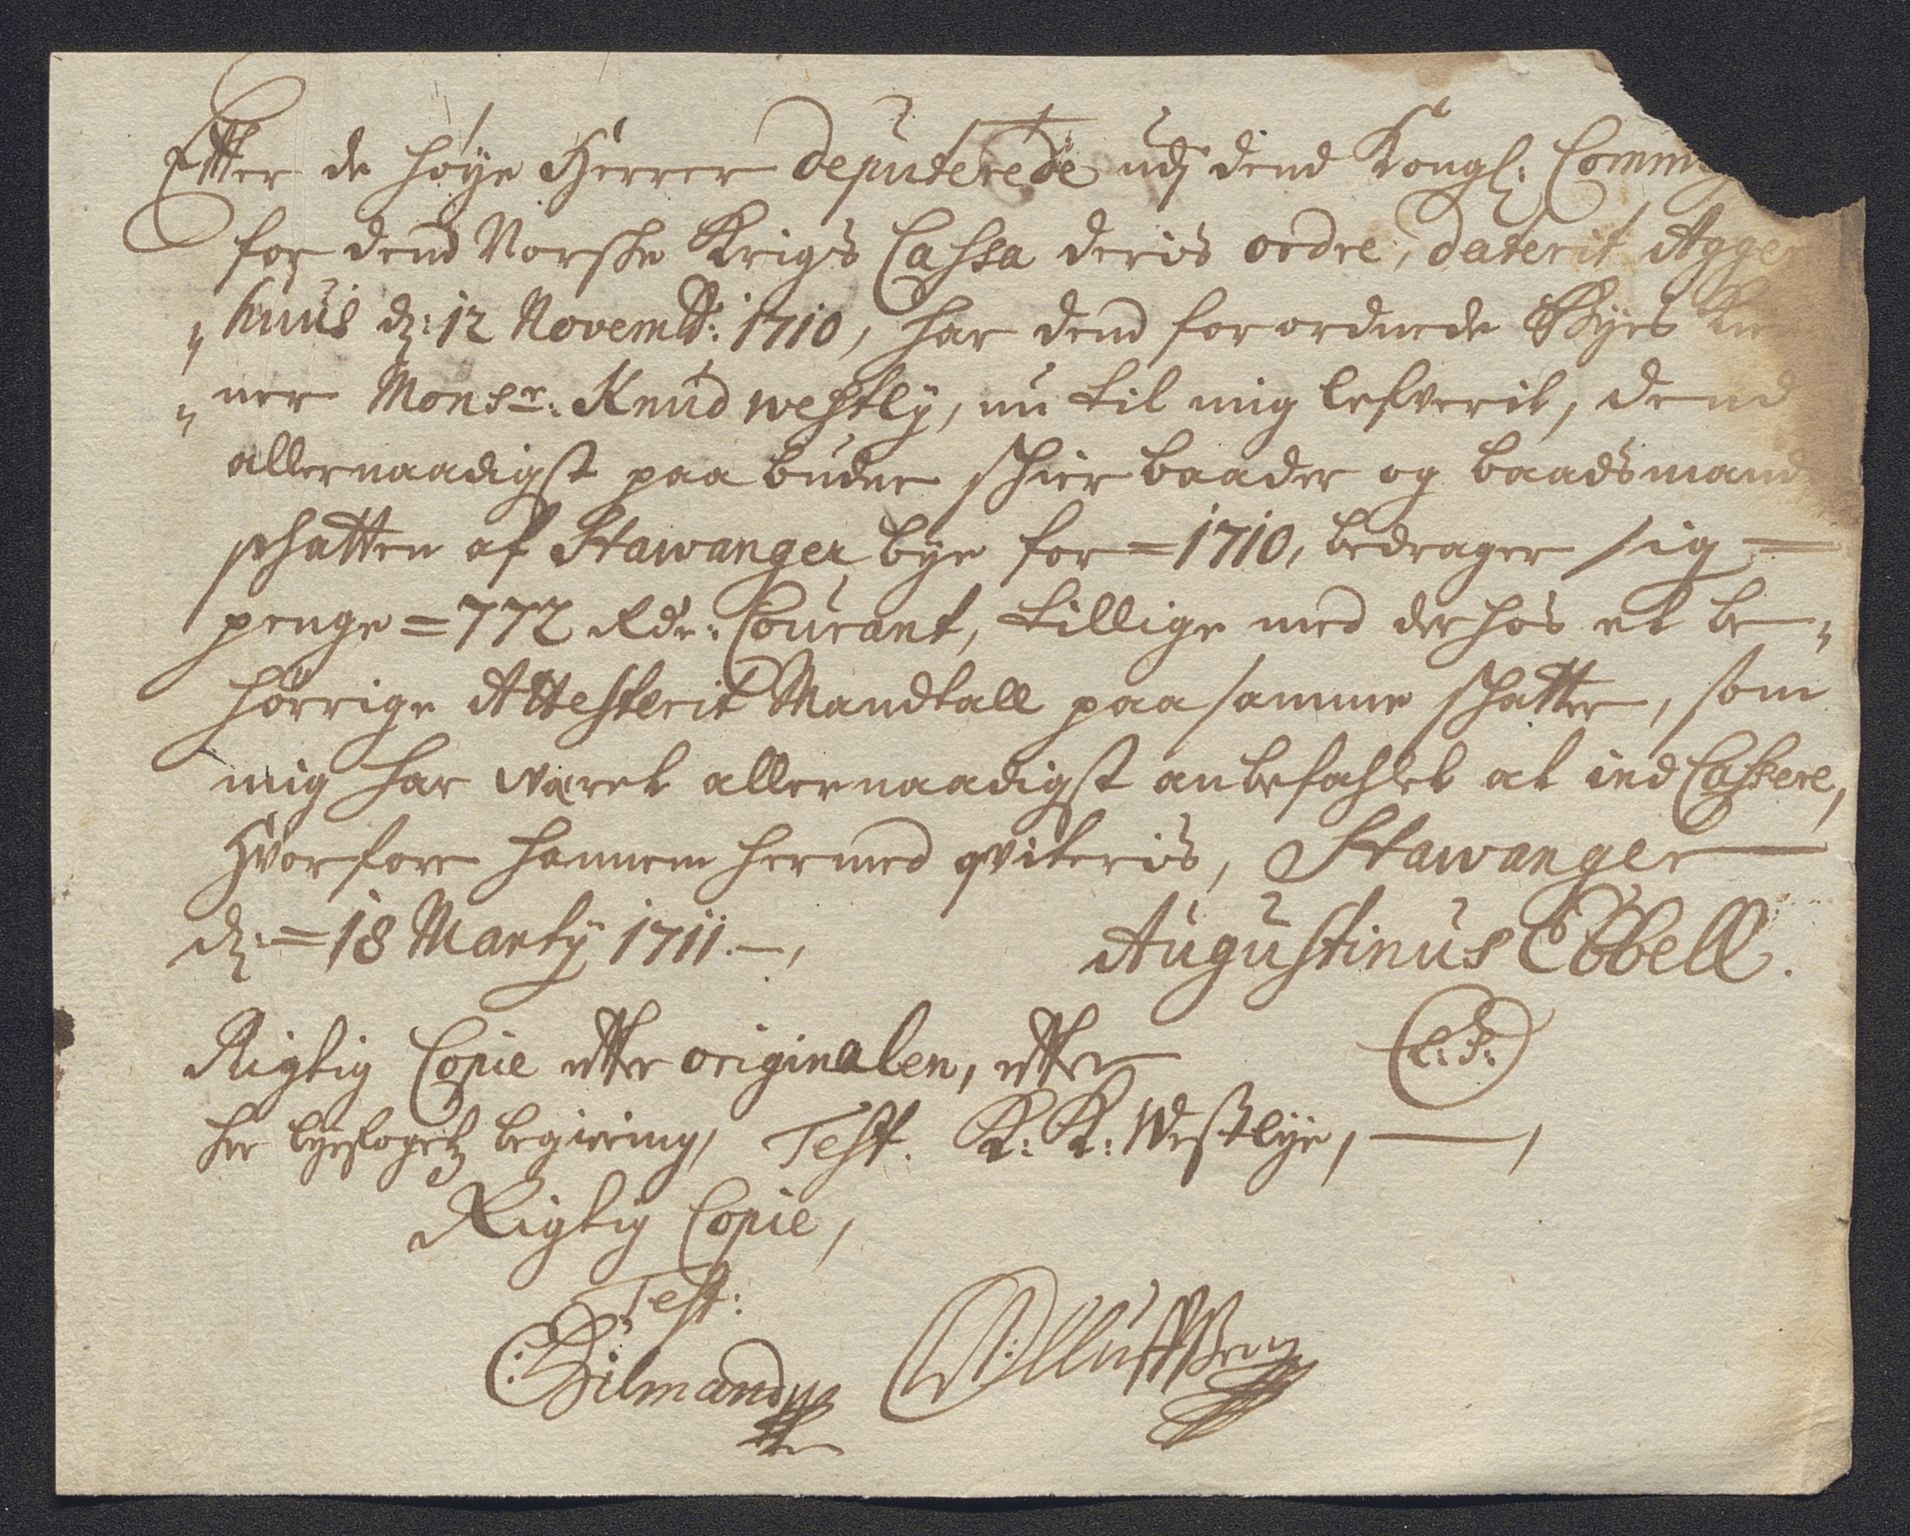 Efter de høye Herrer deputerede udj dend Kongl: Comm
for dend Norske Krigs Cassa deris ordre, daterit Agger
huus dz: 12 Novembr: 1710, har dend forordnede Byes
ner Monsr: Knud westly, nu til mig lefverit, dend
allernaadigst paa budne schier baader og baadsmand
schatten af Stawanger bye for = 1710, bedrager sig =
penge = 772 Rdr: Courant, tillige med derhos et be-
hörrige Attesterit Mandtall paa samme schatter, som
mig har været allernaadigst anbefahlet at ind Cassere,
Hvorfore hannem hermed qviteris, Stawanger
dz: = 18 Marty 1711. -,
Augustinus Ebbell.
Rigtig Copie efter originalen, efter
(L: S:)
her byefogetz begiering, Test. K: K: Westlye, -,
Rigtig Copie,
Test: